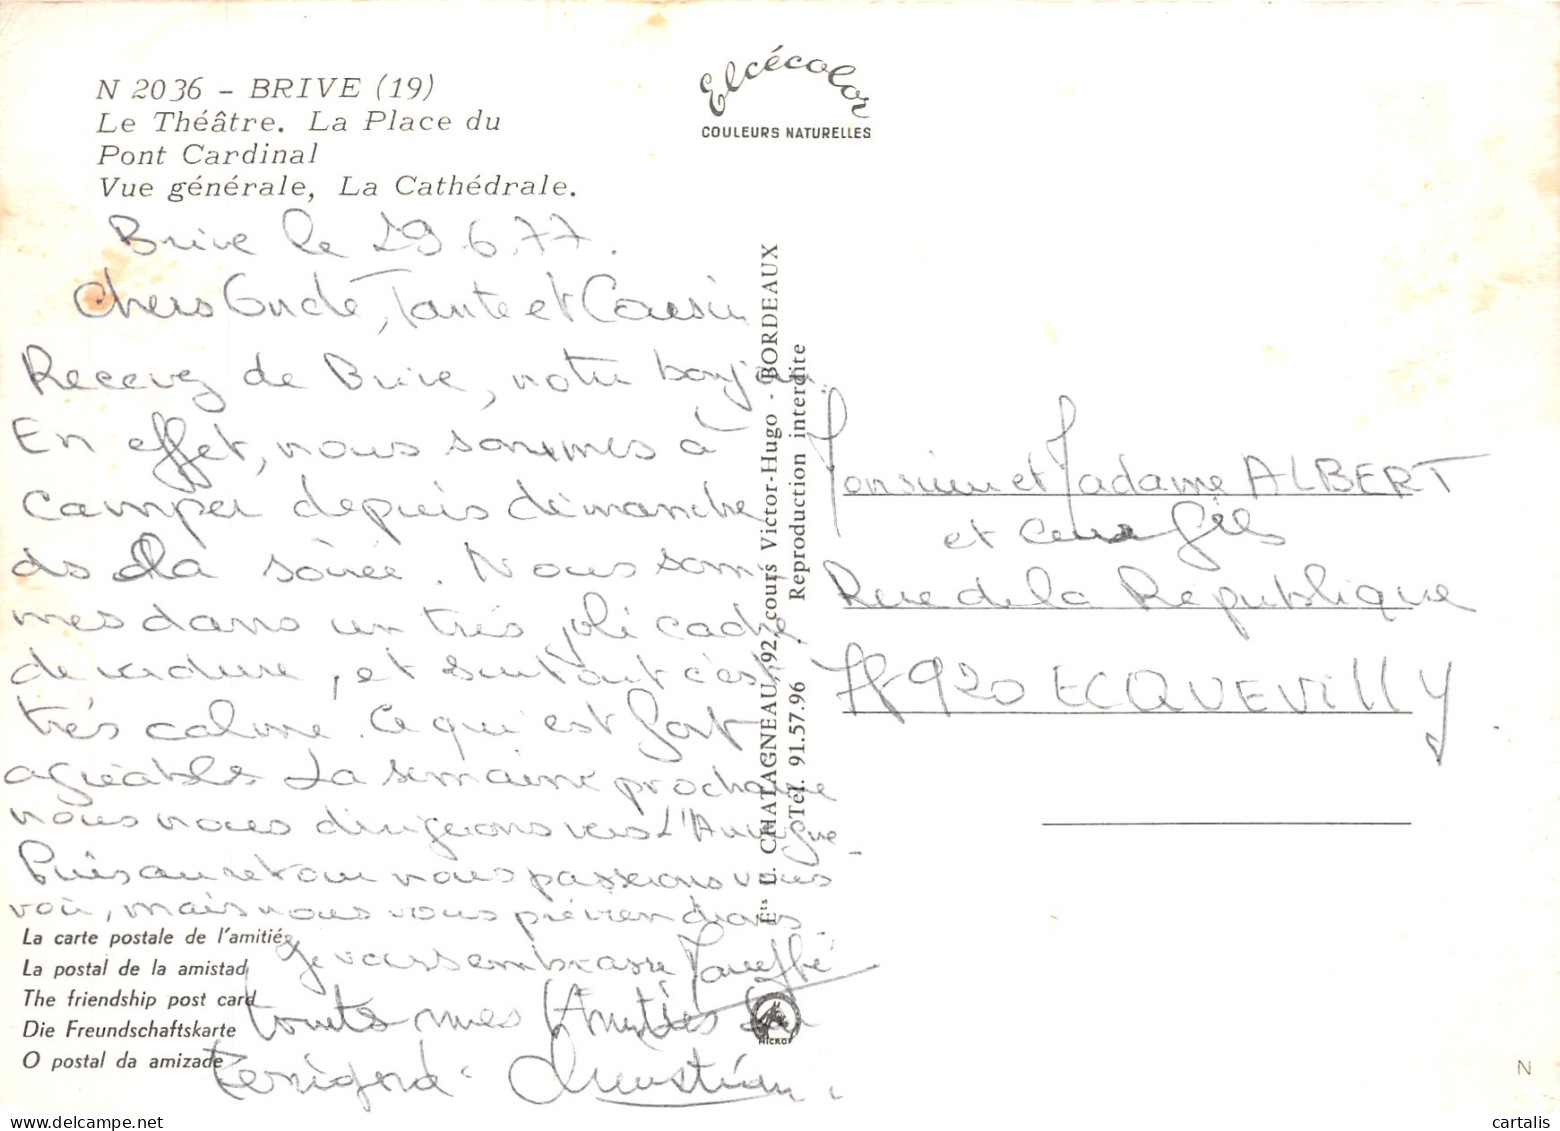 N 2036 - BRIVE (19)
Le Théâtre. La Place du
Pont Cardinal
Vue générale, La Cathédrale.
Elcécolor
COULEURS NATURELLES
Brive le 29.6.77.
Chers Oncle, Tante et Cousin
Recevez de Brive, notre bonjour.
En effet, nous sommes à
camper depuis dimanche
ds la soirée. Nous som
mes dans un très joli cadre
de verdure, et surtout c'est
très calme. Ce qui est fort
agréable. La semaine prochaine
nous nous dirigerons vers L'Auvergne
Puis au retour nous passerons vous
voir, mais nous vous préviendrons.
Je vous embrasse
toutes mes Amitiés du
Perigord. Christian.
Ets L. CHATAGNEAU, 92, cours Victor-Hugo - BORDEAUX
Tél. 91.57.96 . Reproduction interdite
Monsieur et Madame ALBERT
et fils
Rue de la République
78920 ECQUEVILLY
La carte postale de l'amitié
La postal de la amistad
The friendship post card
Die Freundschaftskarte
O postal da amizade
N
cartalis